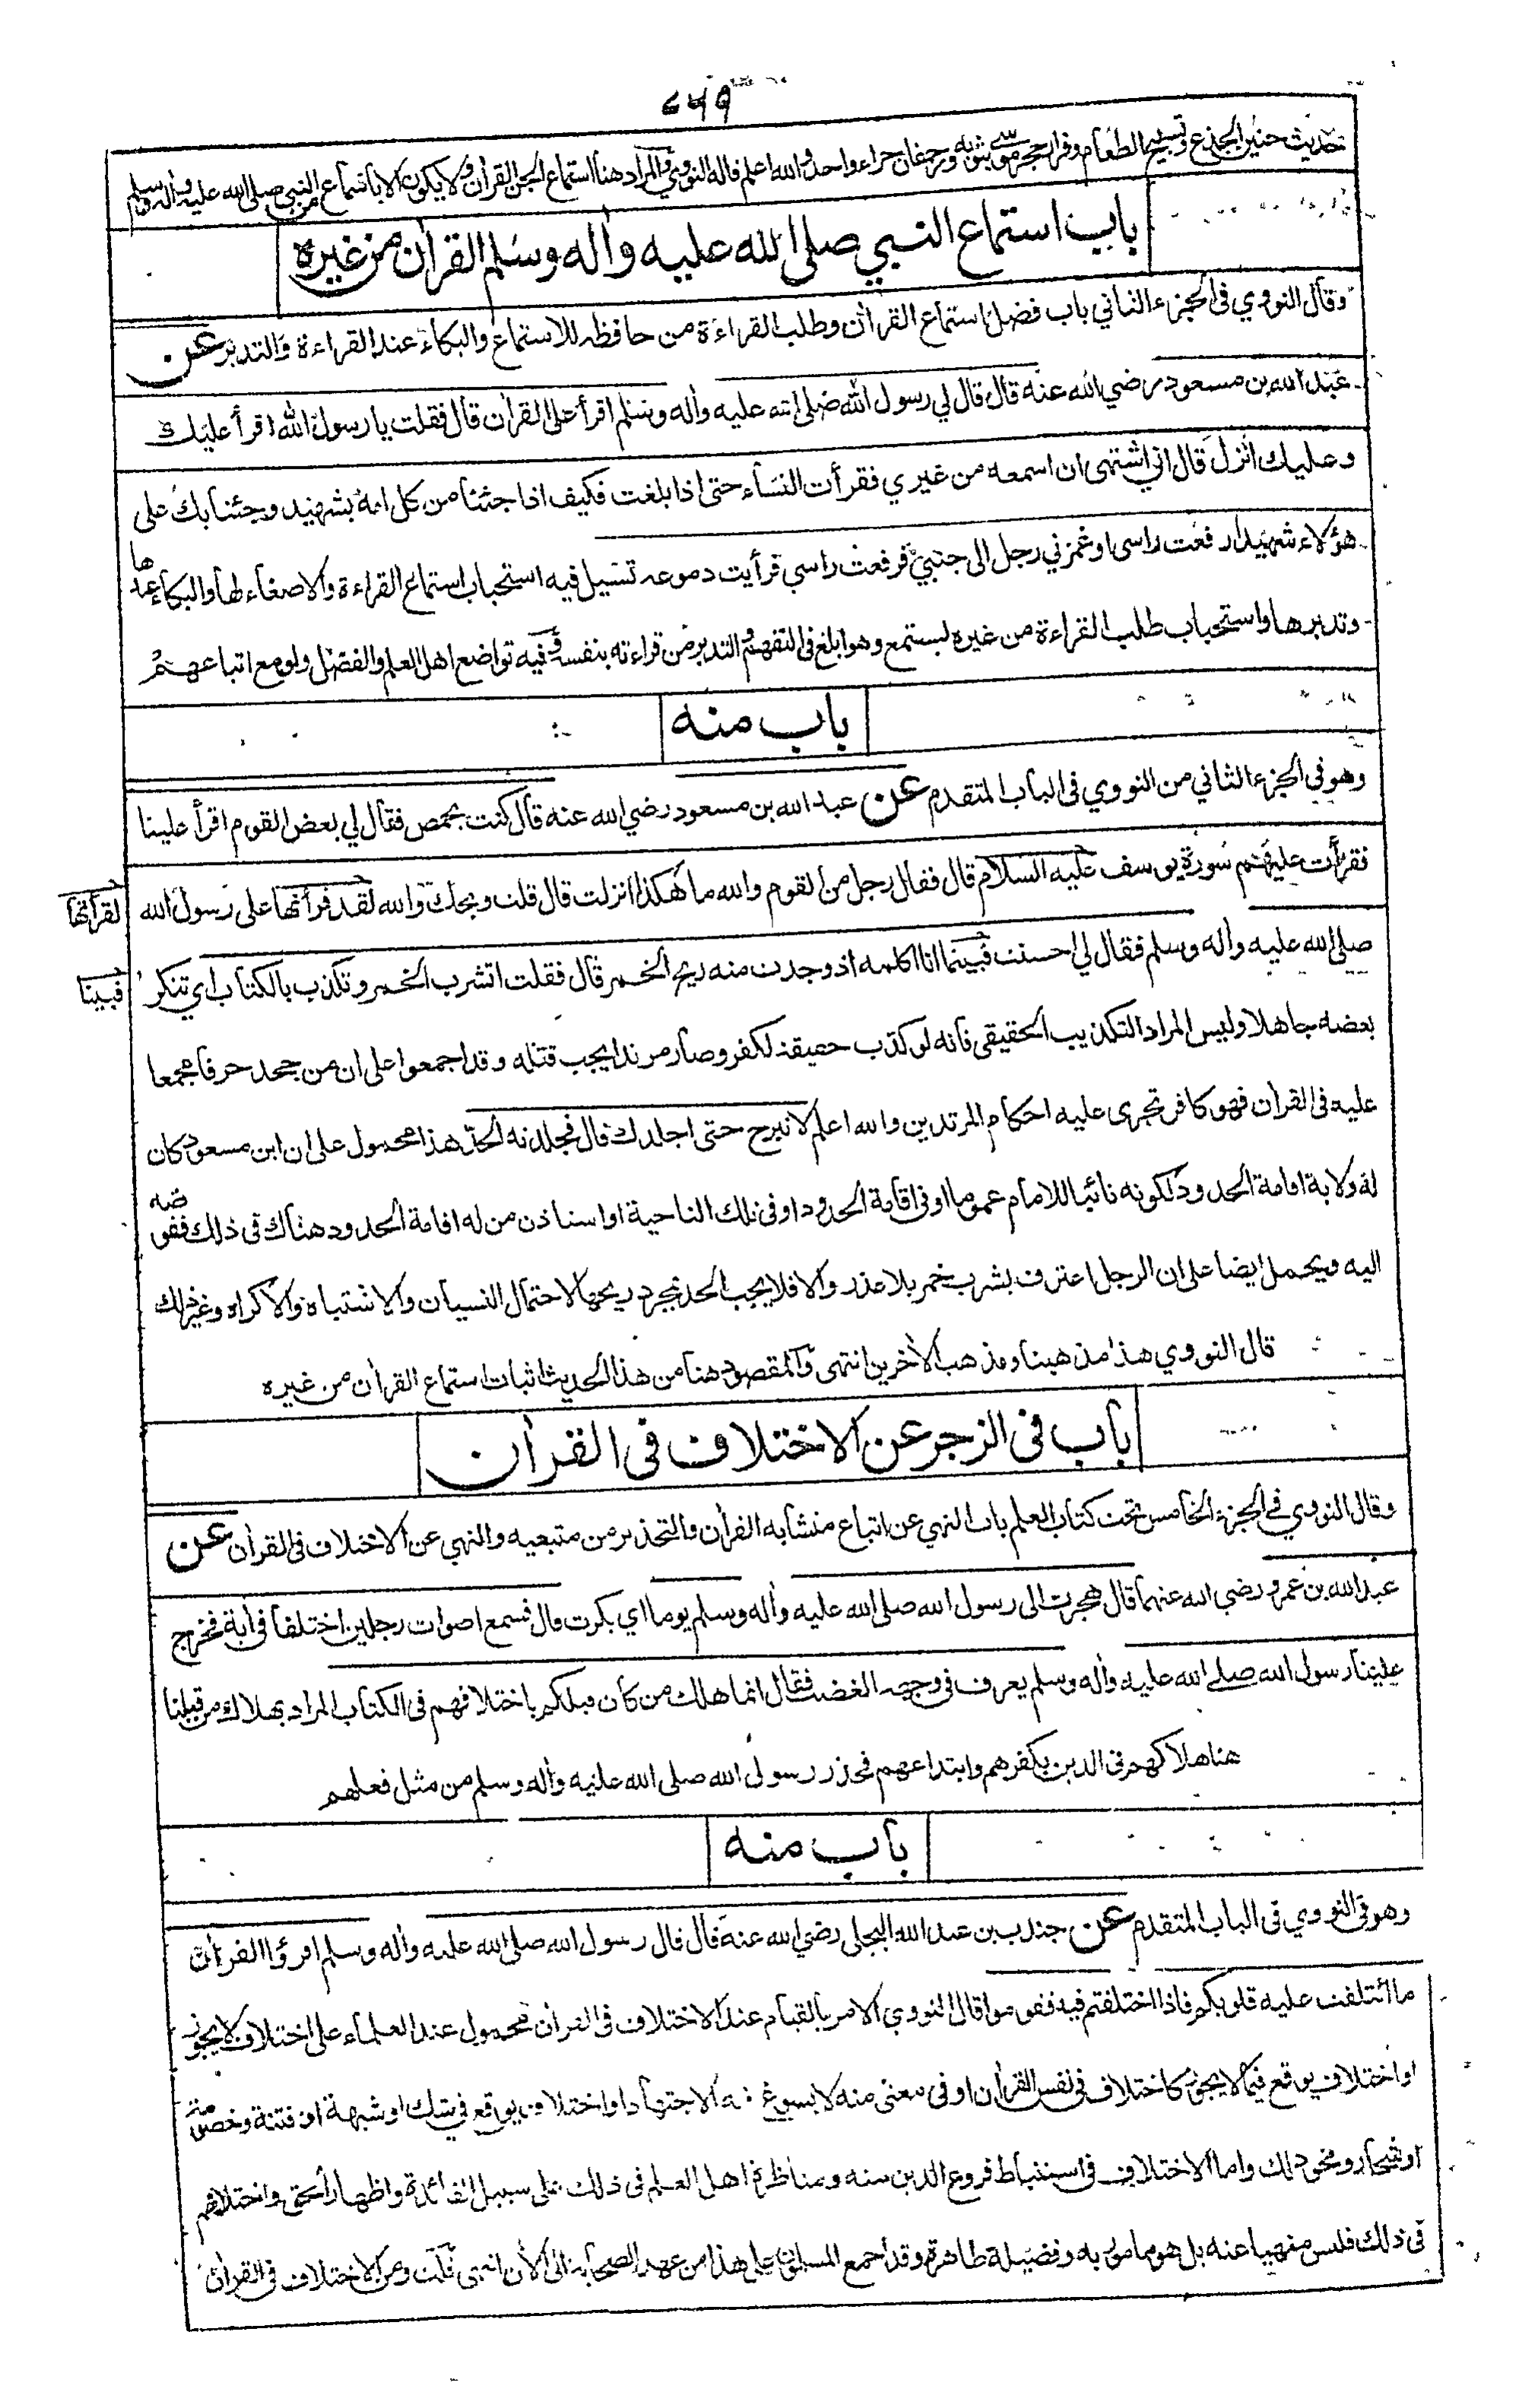 ٧٤٩
حديث حنين الجذع وتسبيح الطعام وفرار حجر موسى بثوبه ورجفان حراء واحد والله اعلم قاله النووي والمراد هنا استماع الجن القرأن ولا يكون الا باستماع من النبي صلى الله عليه واله وسلم
باب استماع النبي صلى الله عليه واله وسلم القرأن من غيره
وقال النووي فى الجزء الثاني باب فضل استماع القرأن وطلب القراءة من حافظه للاستماع والبكاء عند القراءة والتدبر عن
عبد الله بن مسعود رضي الله عنه قال قال لي رسول الله صلى الله عليه واله وسلم اقرأ على القرأن قال فقلت يا رسول الله اقرأ عليك
وعليك انزل قال اني اشتهى ان اسمعه من غيري فقرأت النساء حتى اذا بلغت فكيف اذا جئنا من كل امة بشهيد وجئنا بك على
هؤلاء شهيدا رفعت راسى او غمزني رجل الى جنبي فرفعت راسي فرأيت دموعه تسيل فيه استحباب استماع القراءة والاصغاء لها والبكاء عندها
وتدبرها واستحباب طلب القراءة من غيره ليستمع وهو ابلغ فى التفهم والتدبر من قراءته بنفسه وفيه تواضع اهل العلم والفضل ولو مع اتباعهم
باب منه
وهو في الجزء الثاني من النووي فى الباب المتقدم عن عبد الله بن مسعود رضي الله عنه قال كنت بحمص فقال لي بعض القوم اقرأ علينا
فقرأت عليهم سورة يوسف عليه السلام قال فقال رجل من القوم والله ما هكذا انزلت قال قلت ويحك والله لقد قرأتها على رسول الله
لقرأتها
صلى الله عليه واله وسلم فقال لي احسنت فبينما انا اكلمه اذ وجدت منه ريح الخمر قال فقلت اتشرب الخمر وتكذب بالكتاب اي تنكر
فبينا
بعضه جاهلا وليس المراد التكذيب الحقيقي فانه لو كذب حقيقة لكفر وصار مرتدا يجب قتله وقد اجمعوا على ان من جحد حرفا مجمعا
عليه فى القرأن فهو كافر تجرى عليه احكام المرتدين والله اعلم لا تبرح حتى اجلدك قال فجلدته الحد هذا محمول على ان ابن مسعود كان
له ولاية اقامة الحدود لكونه نائبا للامام عموما او فى اقامة الحدود او فى تلك الناحية او استاذن من له اقامة الحدود هناك فى ذلك ففوضه
اليه ويحمل ايضا على ان الرجل اعترف بشرب خمر بلا عذر والا فلا يجب الحد بمجرد ريحها لاحتمال النسيان والاشتباه والاكراه وغير ذلك
قال النووي هذا مذهبنا ومذهب الأخرين انتهى والمقصود هنا من هذا الحديث اثبات استماع القرأن من غيره
باب فى الزجر عن الاختلاف فى القرأن
وقال النووي في الجزء الخامس تحت كتاب العلم باب النهي عن اتباع متشابه القرأن والتحذير من متبعيه والنهي عن الاختلاف فى القرأن عن
عبد الله بن عمرو رضي الله عنهما قال هجرت الى رسول الله صلى الله عليه واله وسلم يوما اي بكرت قال فسمع اصوات رجلين اختلفا في أية فخرج
علينا رسول الله صلے الله عليه واله وسلم يعرف في وجهه الغضب فقال انما هلك من كان قبلكم باختلافهم فى الكتاب المراد بهلاك من قبلنا
هنا هلاكهم فى الدين بكفرهم وابتداعهم فحذر رسول الله صلى الله عليه واله وسلم من مثل فعلهم
باب منه
وهو فى النووي فى الباب المتقدم عن جندب بن عبد الله البجلي رضي الله عنه قال قال رسول الله صلى الله عليه واله وسلم اقرؤا القرأن
ما ائتلفت عليه قلوبكم فاذا اختلفتم فيه فقوموا قال النووي الامر بالقيام عند الاختلاف فى القرأن محمول عند العلماء على اختلاف لا يجوز
او اختلاف يوقع فيما لا يجوز كاختلاف في نفس القرأن او فى معنى منه لا يسوغ فيه الاجتهاد او اختلاف يوقع في شك او شبهة او فتنة وخصومة
او شجار ونحو ذلك واما الاختلاف فى استنباط فروع الدين منه ومناظرة اهل العلم فى ذلك على سبيل الفائدة واظهار الحق واختلافهم
فى ذلك فليس منهيا عنه بل هو مامور به وفضيلة ظاهرة وقد اجمع المسلمون على هذا من عهد الصحابة الى الأن انتهى قلت ومن الاختلاف فى القرأن